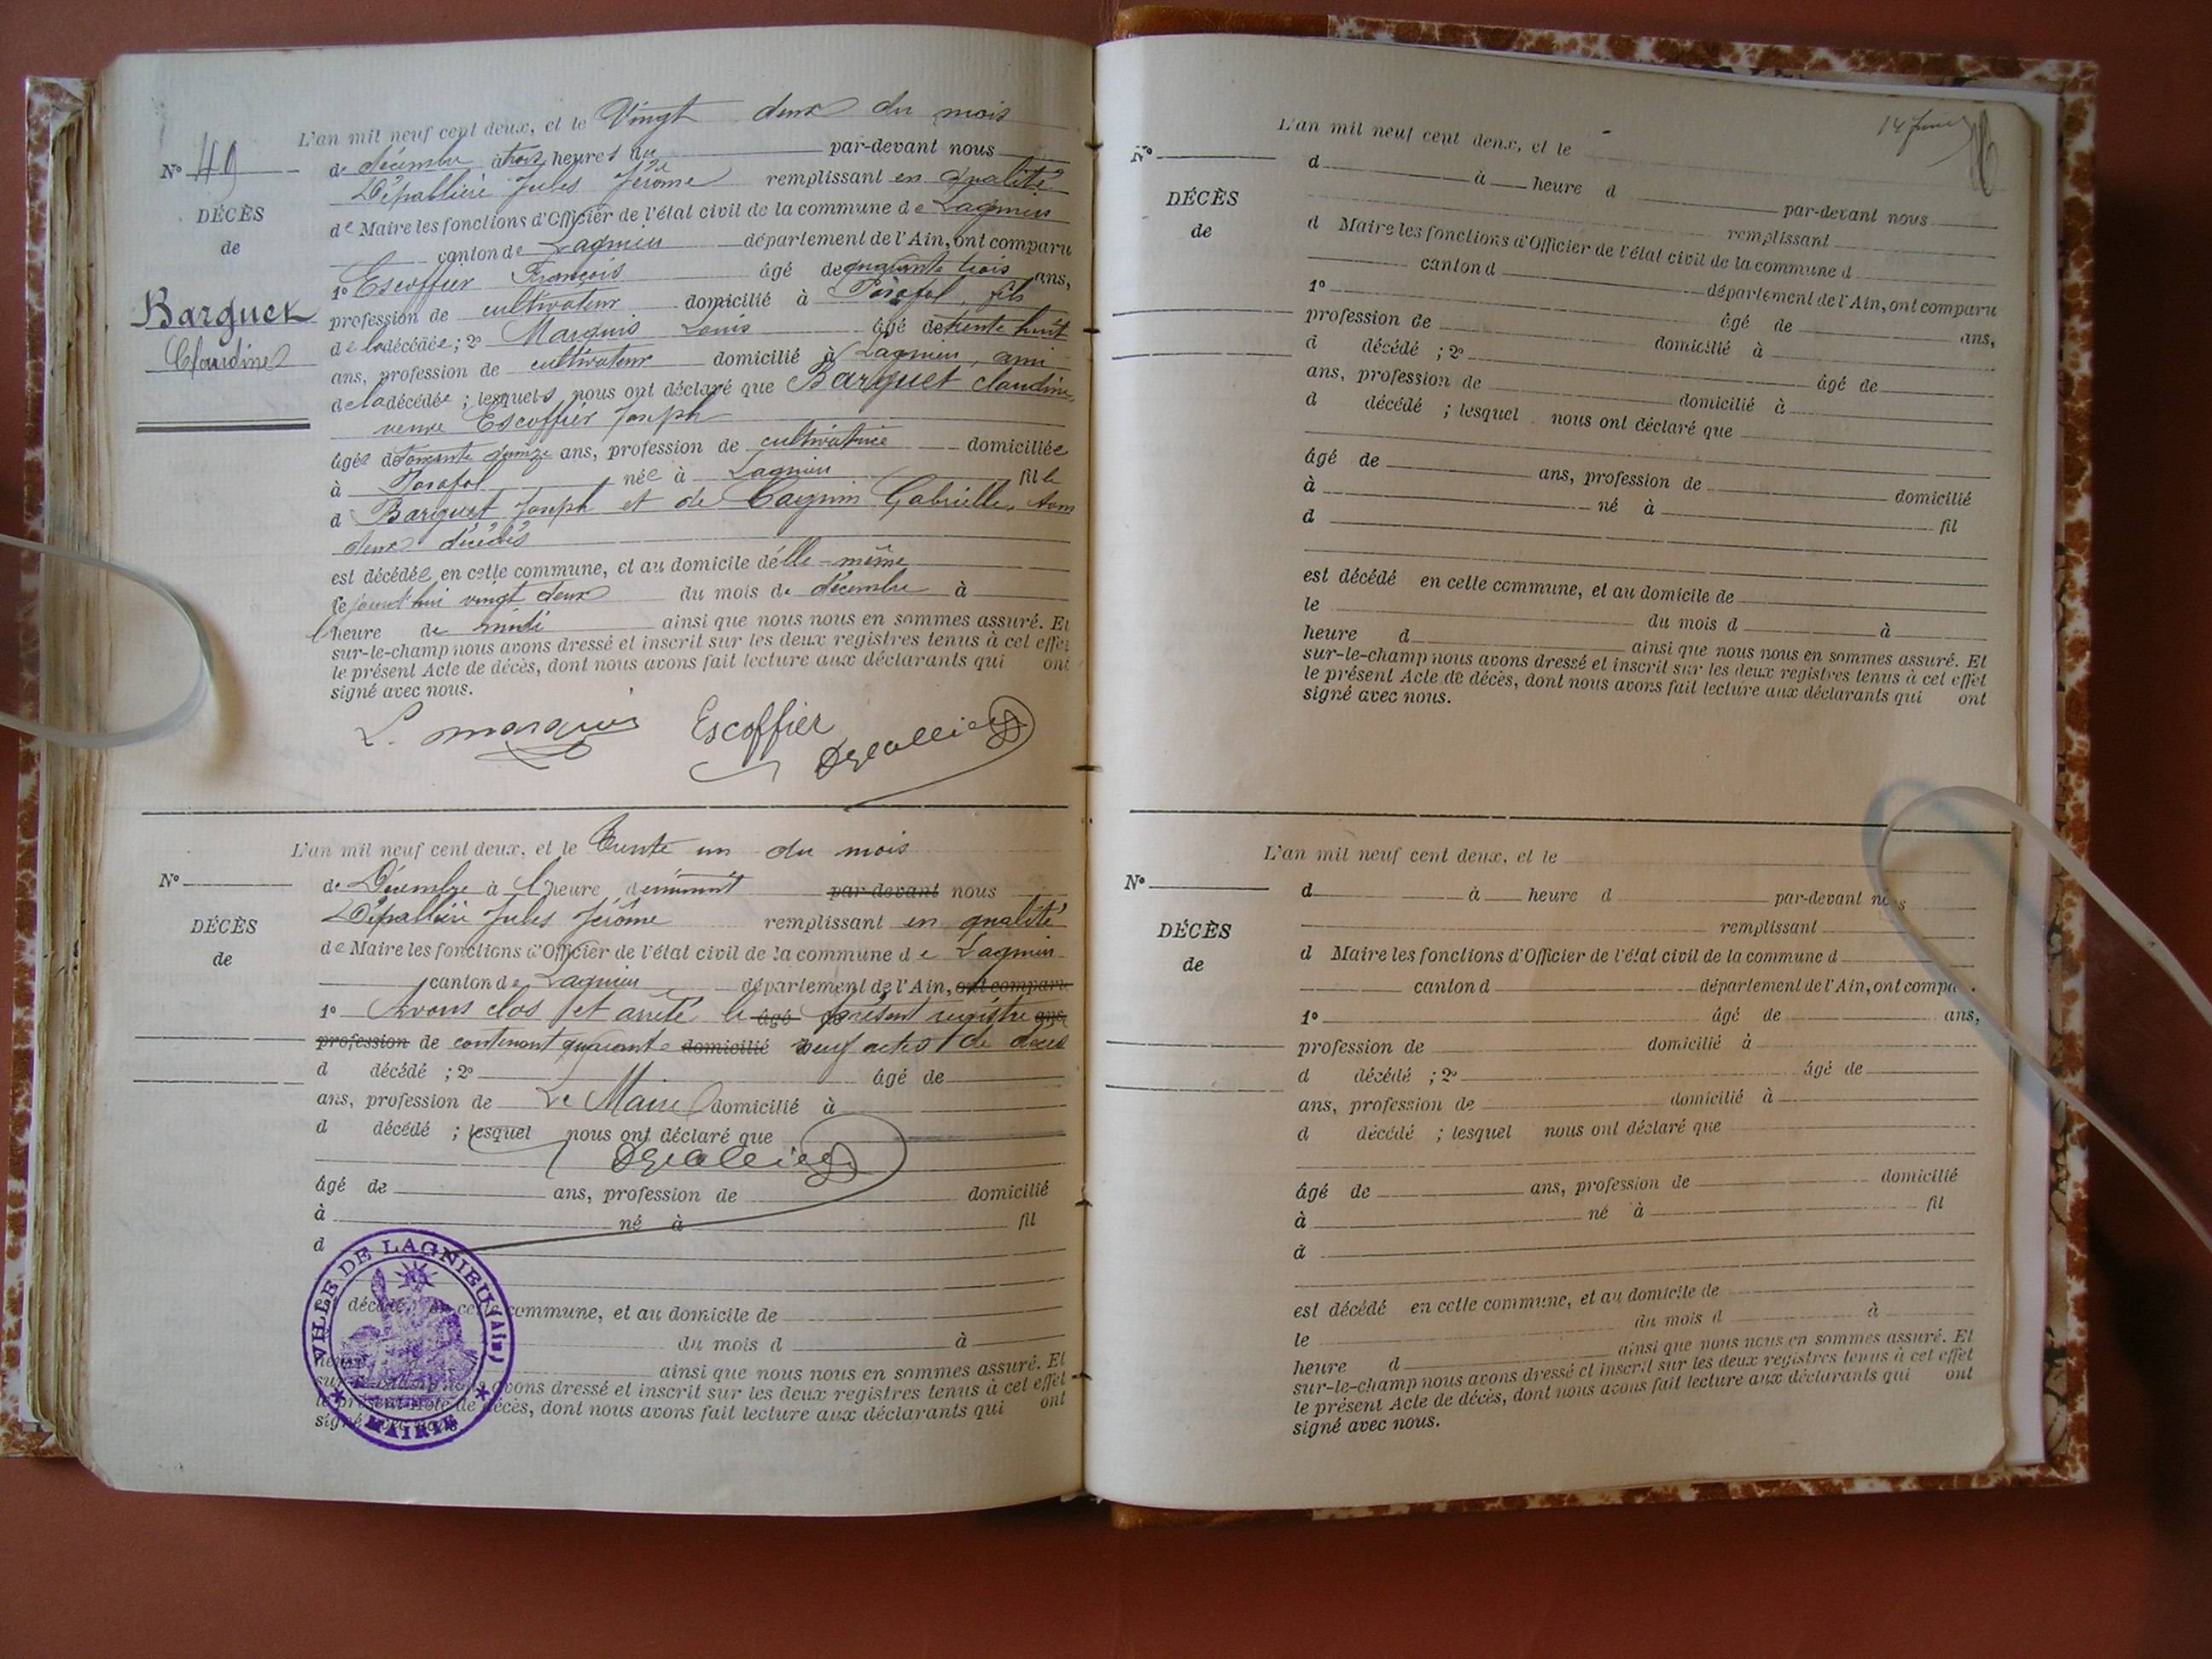 L'an mil neuf cent deux, et le Vingt deux du mois
N° 49
de décembre à trois heures du par-devant nous
Dépallière Jules Jérôme remplissant en qualité
DÉCÈS
de Maire les fonctions d'Officier de l'état civil de la commune de Lagnieu
de
canton de Lagnieu département de l'Ain, ont comparu
1° Escoffier François âgé de quarante trois ans,
Barquet
profession de cultivateur domicilié à Posafol, fils
Claudine
de la décédée ; 2° Marquis Louis âgé de trente huit
ans, profession de cultivateur domicilié à Lagnieu, ami
de la décédée ; lesquels nous ont déclaré que Barquet claudine,
veuve Escoffier Joseph
âgée de soixante quinze ans, profession de cultivatrice domiciliée
à Posafol née à Lagnieu fille
d Barquet Joseph et de Gabrielle, tous
deux décédés
est décédée en cette commune, et au domicile d'elle-même
le jourd'hui vingt deux du mois de décembre à
l'heure de midi ainsi que nous nous en sommes assuré. Et
sur-le-champ nous avons dressé et inscrit sur les deux registres tenus à cet effet
le présent Acte de décès, dont nous avons fait lecture aux déclarants qui ont
signé avec nous.
L. marquis Escoffier Dépallière
L'an mil neuf cent deux, et le Trente un du mois
N°
de Décembre à l'heure de minuit par-devant nous
Dépallière Jules Jérôme remplissant en qualité
DÉCÈS
de Maire les fonctions d'Officier de l'état civil de la commune de Lagnieu
de
canton de Lagnieu département de l'Ain, ont comparu
1° Avons clos et arrêté le âgé de présent registre ans,
profession de contenant quarante domicilié neuf actes de décès
d décédé ; 2° âgé de
ans, profession de Le Maire domicilié à
d décédé ; lesquel nous ont déclaré que
Dépallière
âgé de ans, profession de domicilié
à né à fil
d
décédé en cette commune, et au domicile de
du mois d à
heure d ainsi que nous nous en sommes assuré. Et
sur-le-champ nous avons dressé et inscrit sur les deux registres tenus à cet effet
le présent Acte de décès, dont nous avons fait lecture aux déclarants qui ont
signé avec nous.
VILLE DE LAGNIEU (Ain)
MAIRIE
L'an mil neuf cent deux, et le
N°
d à heure d par-devant nous
remplissant
DÉCÈS
d Maire les fonctions d'Officier de l'état civil de la commune d
de
canton d département de l'Ain, ont comparu
1° âgé de ans,
profession de domicilié à
d décédé ; 2° âgé de
ans, profession de domicilié à
d décédé ; lesquel nous ont déclaré que
âgé de ans, profession de domicilié
à né à fil
d
est décédé en cette commune, et au domicile de
le du mois d à
heure d ainsi que nous nous en sommes assuré. Et
sur-le-champ nous avons dressé et inscrit sur les deux registres tenus à cet effet
le présent Acte de décès, dont nous avons fait lecture aux déclarants qui ont
signé avec nous.
L'an mil neuf cent deux, et le
N°
d à heure d par-devant nous
remplissant
DÉCÈS
d Maire les fonctions d'Officier de l'état civil de la commune d
de
canton d département de l'Ain, ont compa
1° âgé de ans,
profession de domicilié à
d décédé ; 2° âgé de
ans, profession de domicilié à
d décédé ; lesquel nous ont déclaré que
âgé de ans, profession de domicilié
à né à fil
d
est décédé en cette commune, et au domicile de
le du mois d à
heure d ainsi que nous nous en sommes assuré. Et
sur-le-champ nous avons dressé et inscrit sur les deux registres tenus à cet effet
le présent Acte de décès, dont nous avons fait lecture aux déclarants qui ont
signé avec nous.